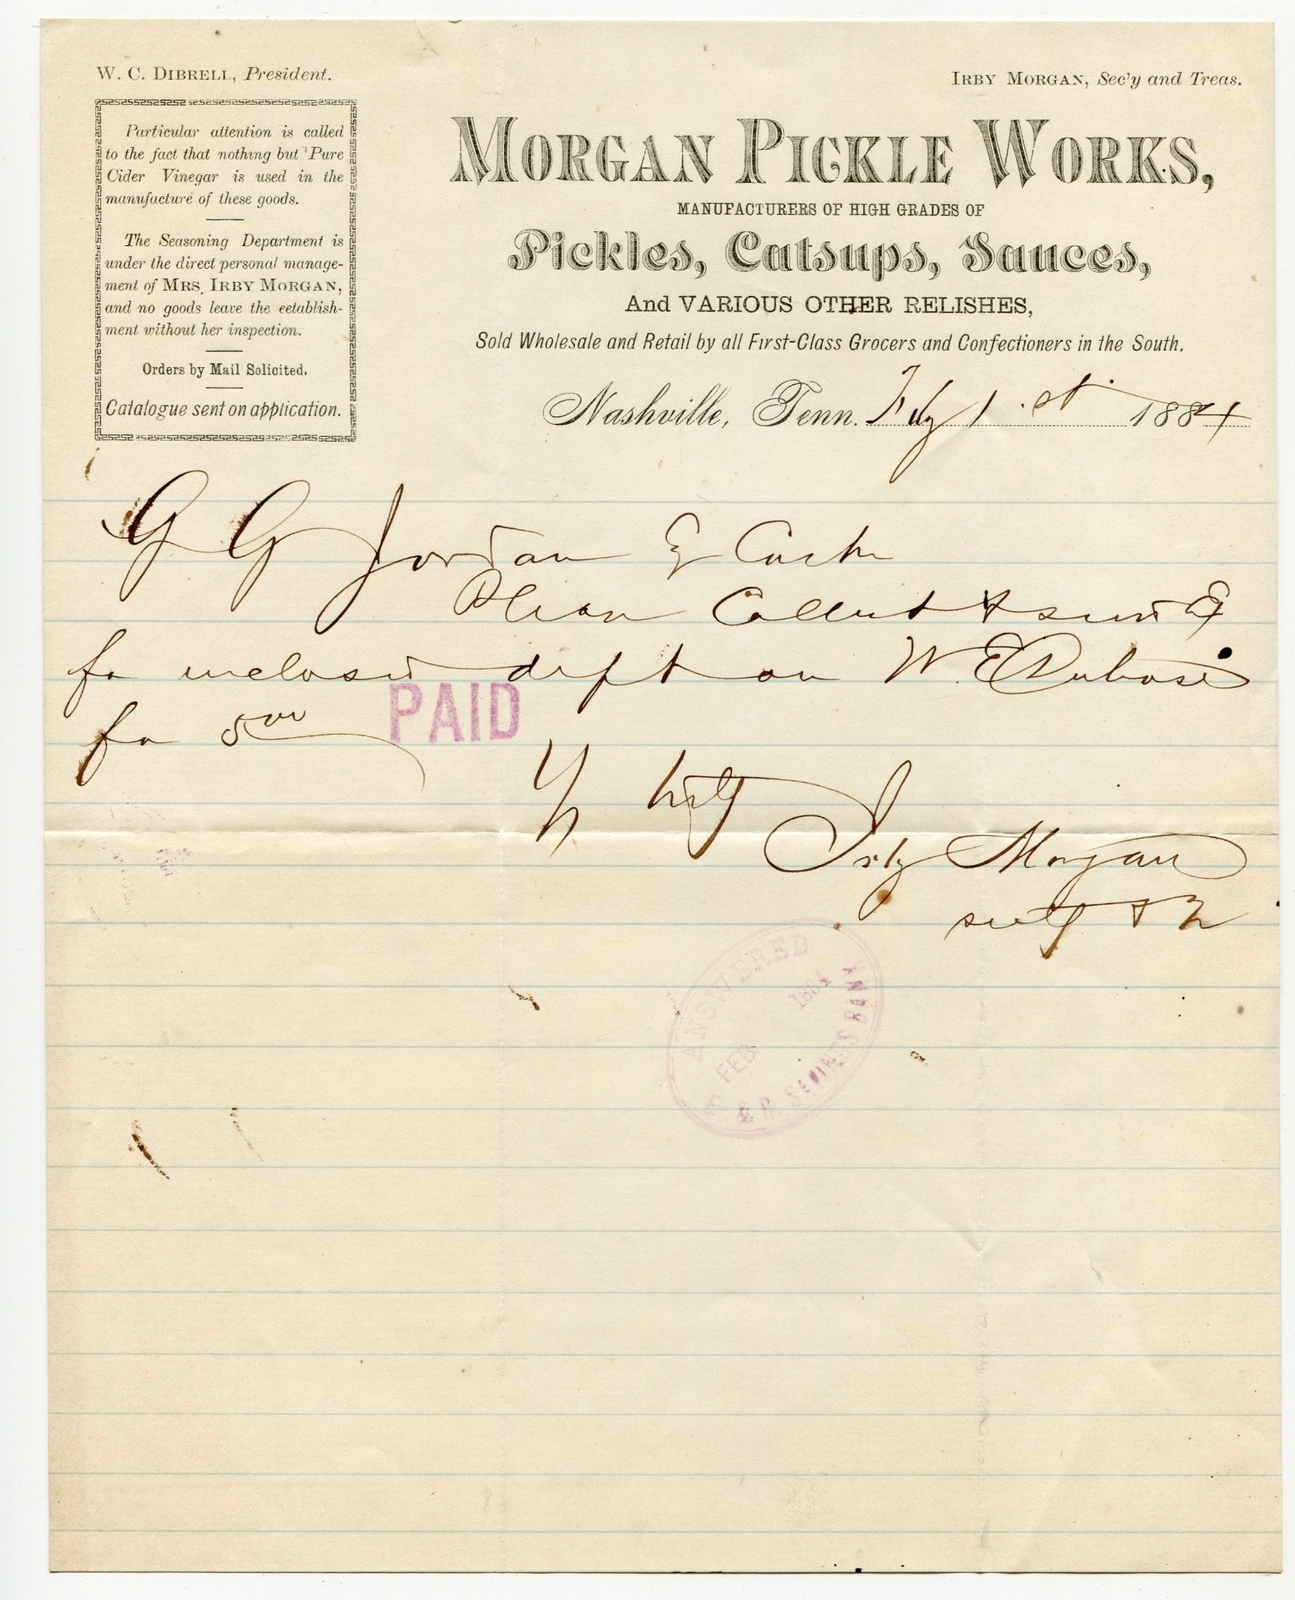 W. C. DIBRELL, President.
IRBY MORGAN, Sec'y and Treas.
Particular attention is called
to the fact that nothing but Pure
Cider Vinegar is used in the
manufacture of these goods.
The Seasoning Department is
under the direct personal manage-
ment of MRS. IRBY MORGAN,
and no goods leave the eetablish-
ment without her inspection.
Orders by Mail Solicited.
Catalogue sent on application.
MORGAN PICKLE WORKS,
MANUFACTURERS OF HIGH GRADES OF
Pickles, Catsups, Sauces,
And VARIOUS OTHER RELISHES,
Sold Wholesale and Retail by all First-Class Grocers and Confectioners in the South.
Nashville, Tenn. Feby 1st 1884
G G Jordan Eq Cash
Please Collect & send Ex
for inclosed draft on W. E. Dubose
for 500
PAID
Irby Morgan
ANSWERED
FEB 1884
& R. SAVINGS BANK